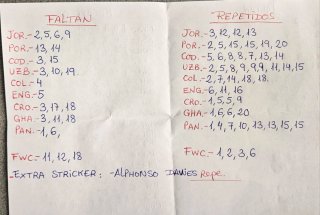 FALTAN
JOR.- 2, 5, 6, 9
POR.- 13, 14
COD.- 3, 15
UZB.- 3, 10, 19
COL.- 4
ENG.- 5
CRO.- 3, 17, 18
GHA.- 3, 11, 18
PAN.- 1, 6,
FWC.- 11, 12, 18
REPETIDOS
JOR.- 3, 12, 12, 13
POR.- 2, 5, 15, 15, 19, 20
COD.- 5, 6, 8, 8, 7, 13, 14
UZB.- 2, 5, 8, 9, 9, 9, 11, 14, 15
COL.- 2, 7, 14, 18, 18.
ENG.- 6, 11, 16
CRO.- 1, 5, 5, 9
GHA.- 1, 6, 6, 20
PAN.- 1, 4, 7, 10, 13, 13, 15, 15
FWC.- 1, 2, 3, 6
-EXTRA STRICKER: -ALPHONSO DAVIES Repe.